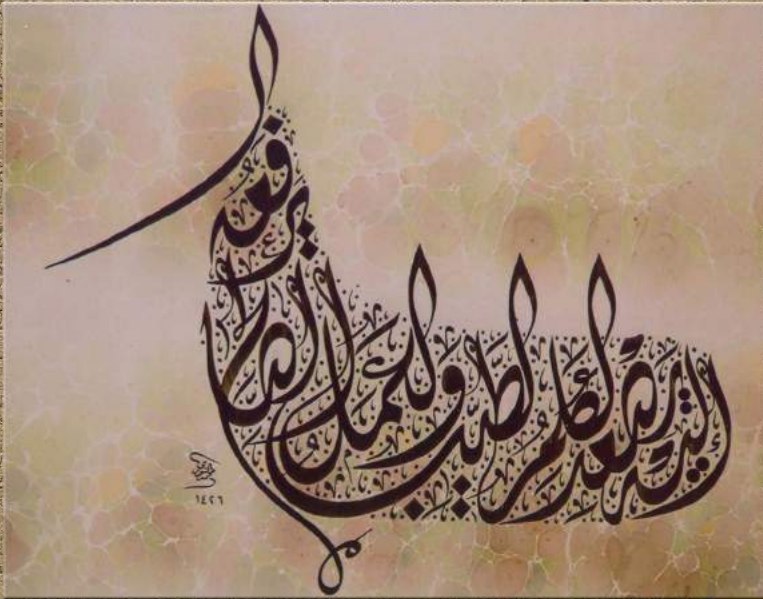 إليه يصعد الكلم الطيب والعمل الصالح يرفعه
١٤٢٦